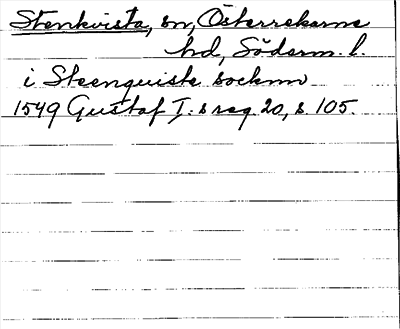 Stenkvista, sn, Österrekarne
hd, Söderm. l.
i Steenquista socknn
1549 Gustaf I:s reg. 20, s. 105.